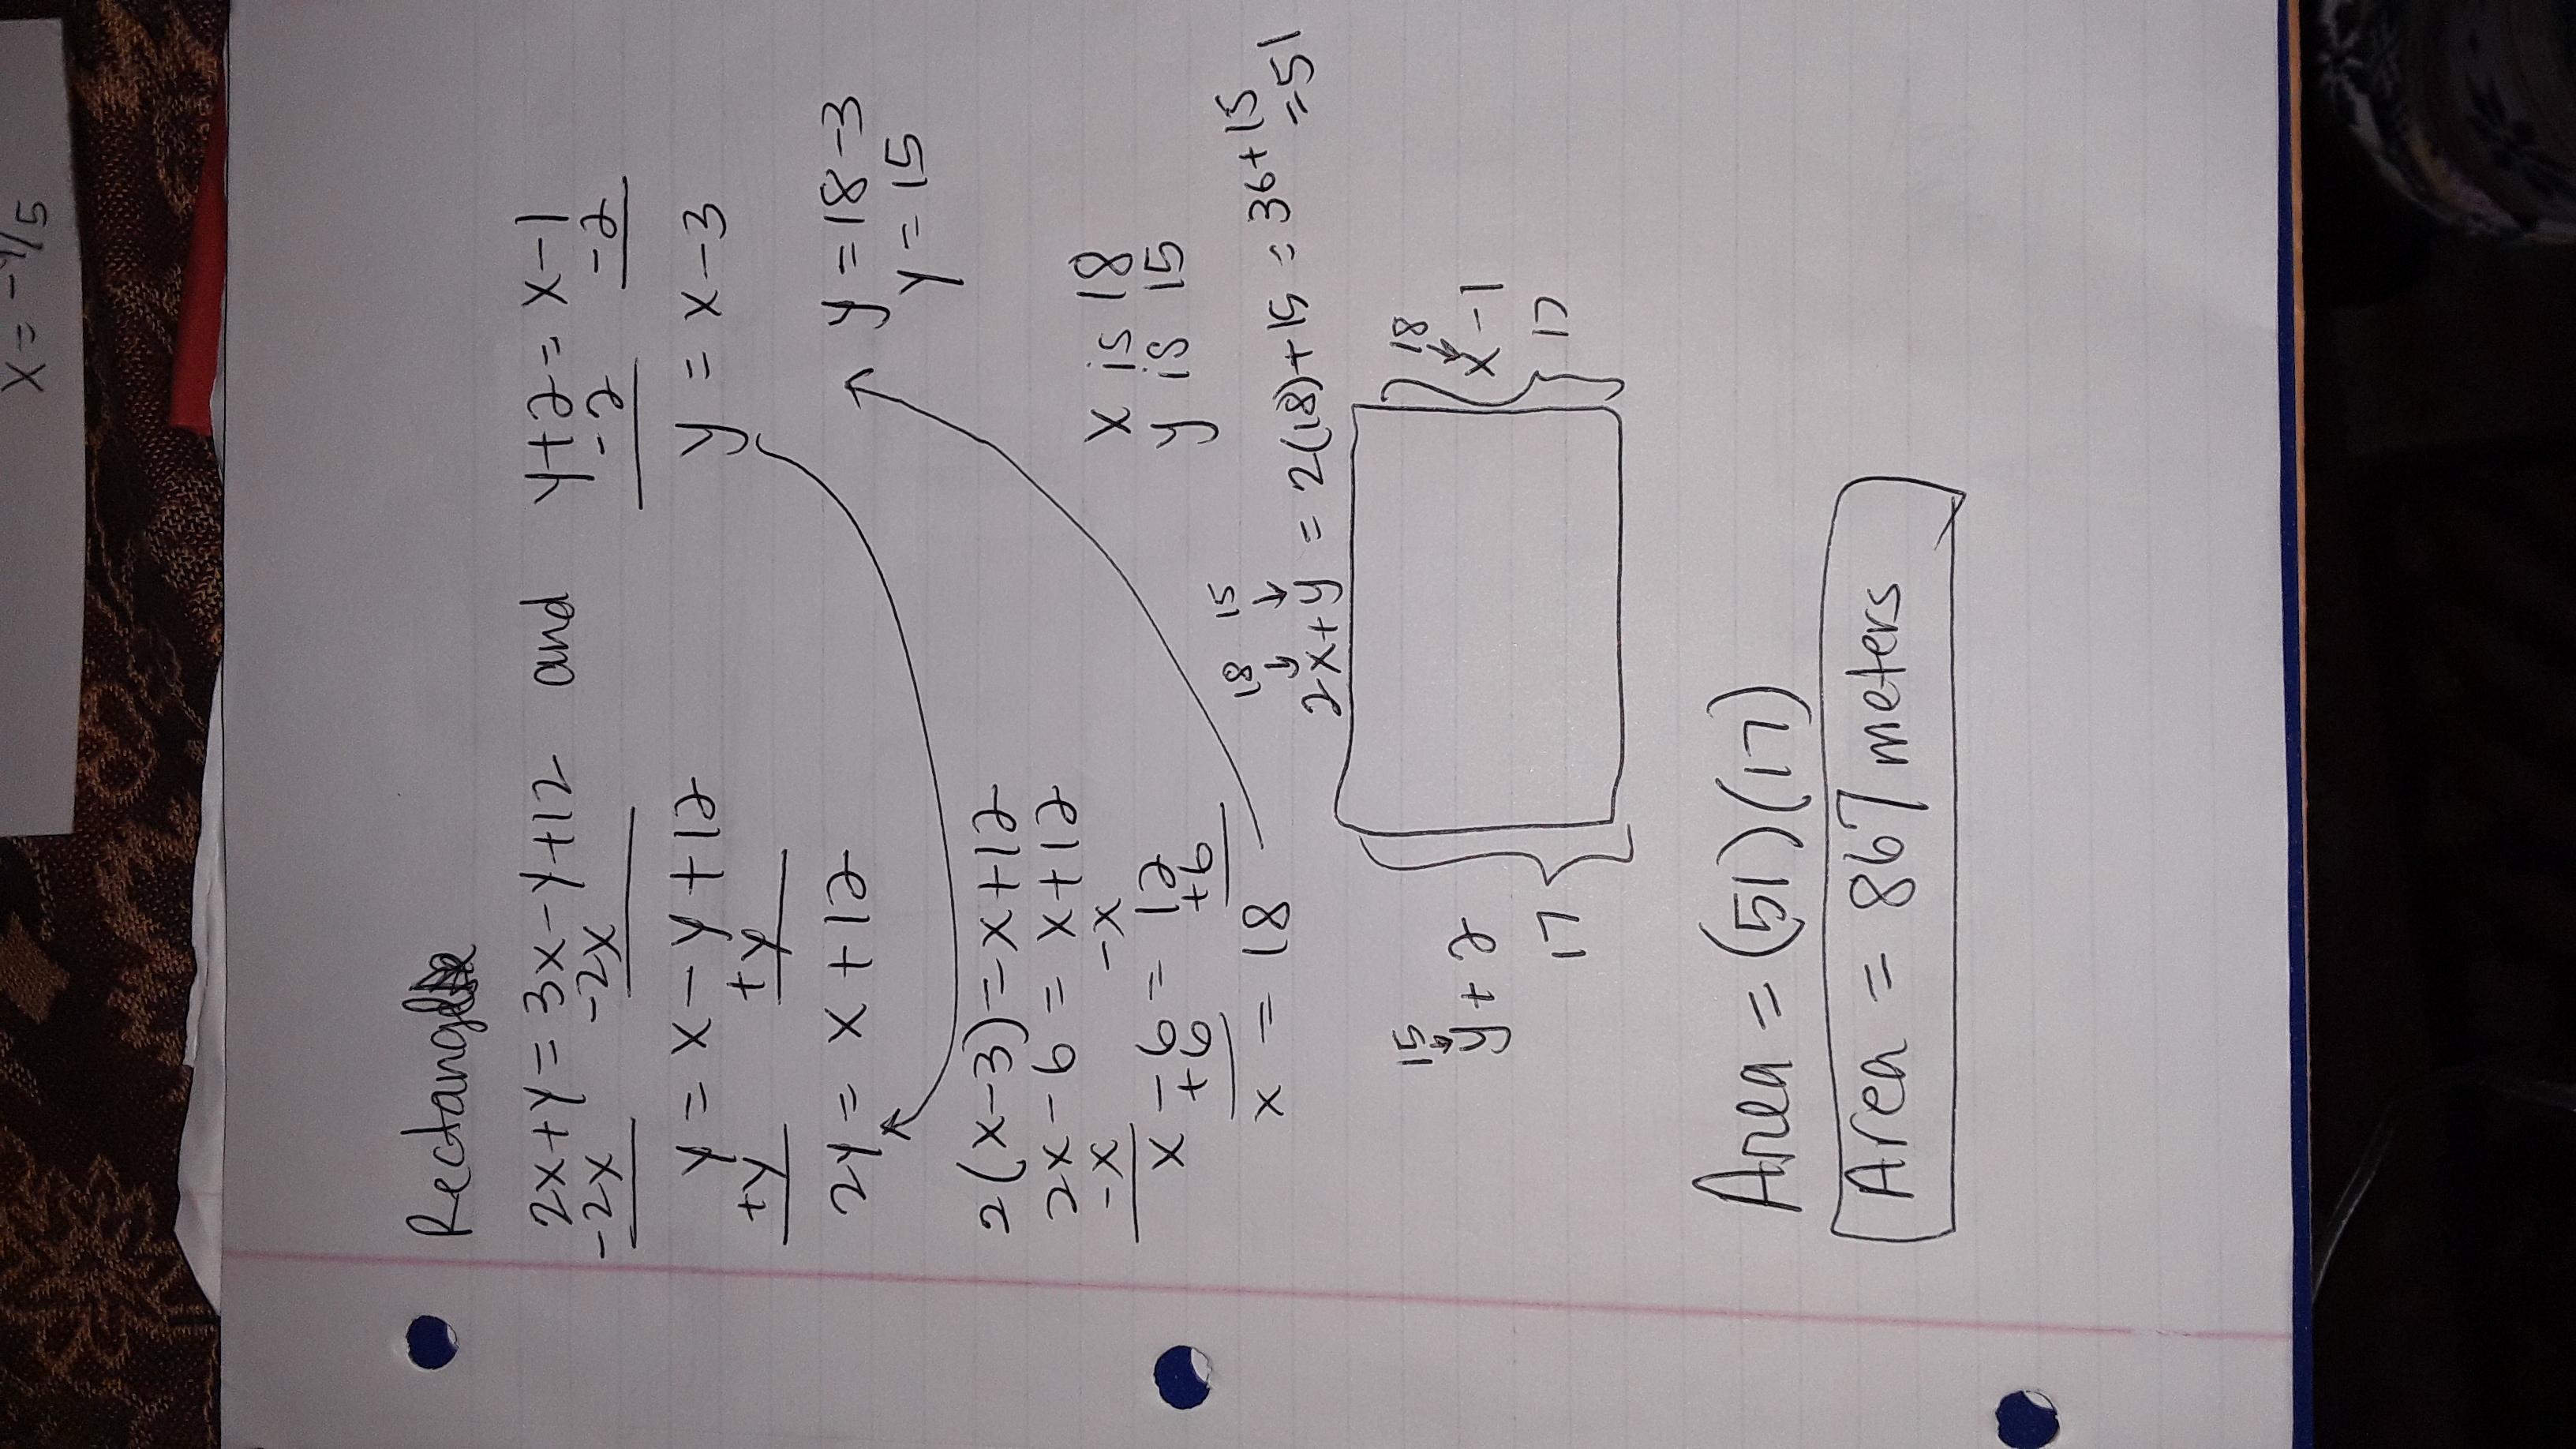 x = -9/5
Rectangle
2x+y = 3x-y+12 and y+2 = x-1
-2x -2x -2 -2
y = x-y+12 y = x-3
+y +y
2y = x+12 y = 18-3
y = 15
2(x-3) = x+12
2x-6 = x+12
-x -x
x is 18
x-6 = 12 y is 15
+6 +6
x = 18
18 15
2x+y = 2(18)+15 = 36+15
=51
15 18
y+2 x-1
17 17
Area = (51)(17)
Area = 867 meters